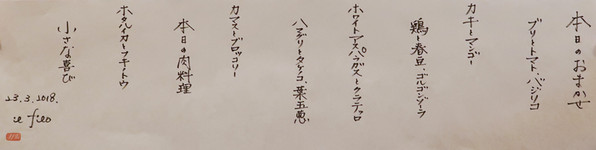 本日のおまかせ
ブリ、トマト、バジリコ
カキとマンゴー
鶏と春豆、ゴルゴンゾーラ
ホワイトアスパラガスとクラテッロ
ハマグリとタケノコ、葉玉葱
カマスとブロッコリー
本日の肉料理
ホタルイカとフキノトウ
小さな喜び
23.3.2018.
il fico